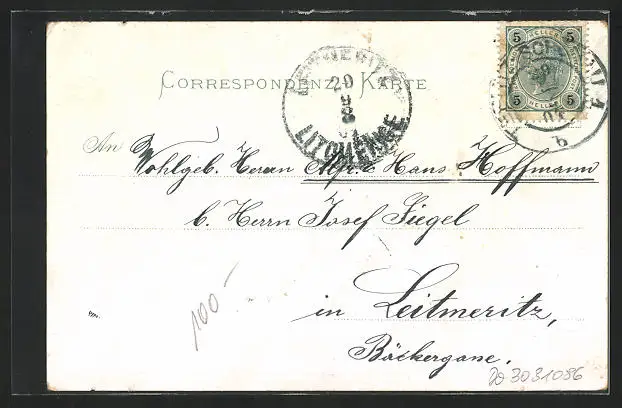 CORRESPONDENZ-KARTE
5 HELLER 5
5 HELLER 5
LEITMERITZ
20
8
LITOMĚŘICE
An
Wohlgeb. Herrn Hans Hoffmann
b. Herrn Josef Fiegel
in Leitmeritz,
Bäckergasse.
100-
3031056